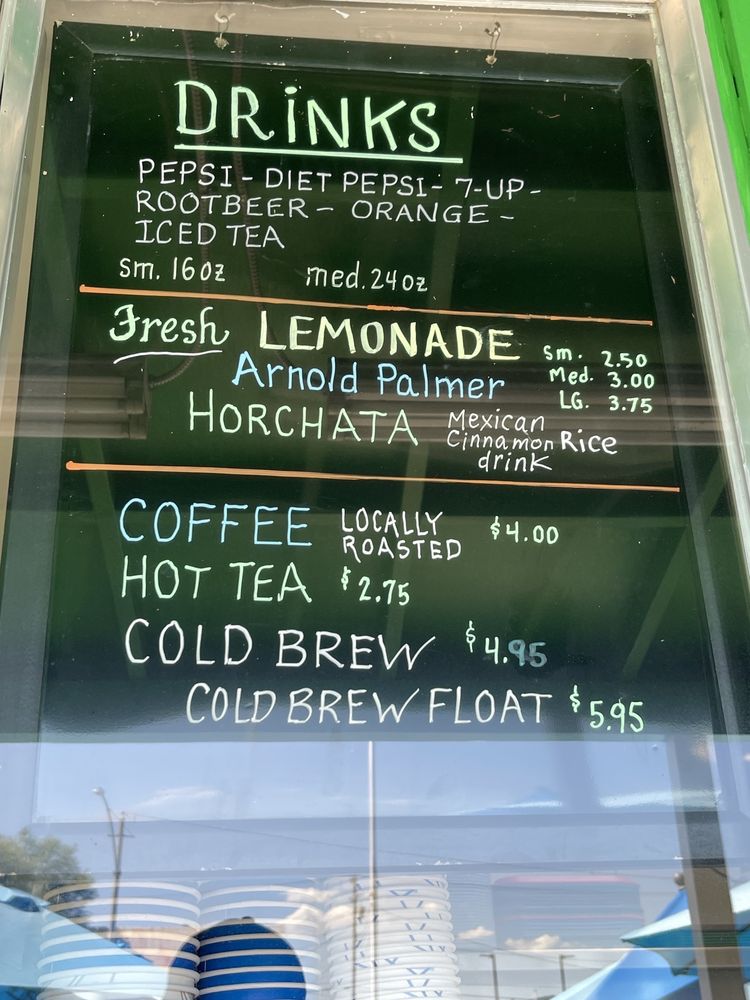 DRINKS
PEPSI - DIET PEPSI - 7-UP -
ROOTBEER - ORANGE -
ICED TEA
sm. 16oz med. 24oz
Fresh LEMONADE sm. 2.50
Arnold Palmer Med. 3.00
LG. 3.75
HORCHATA Mexican
Cinnamon Rice
drink
COFFEE LOCALLY ROASTED $4.00
HOT TEA $2.75
COLD BREW $4.95
COLD BREW FLOAT $5.95